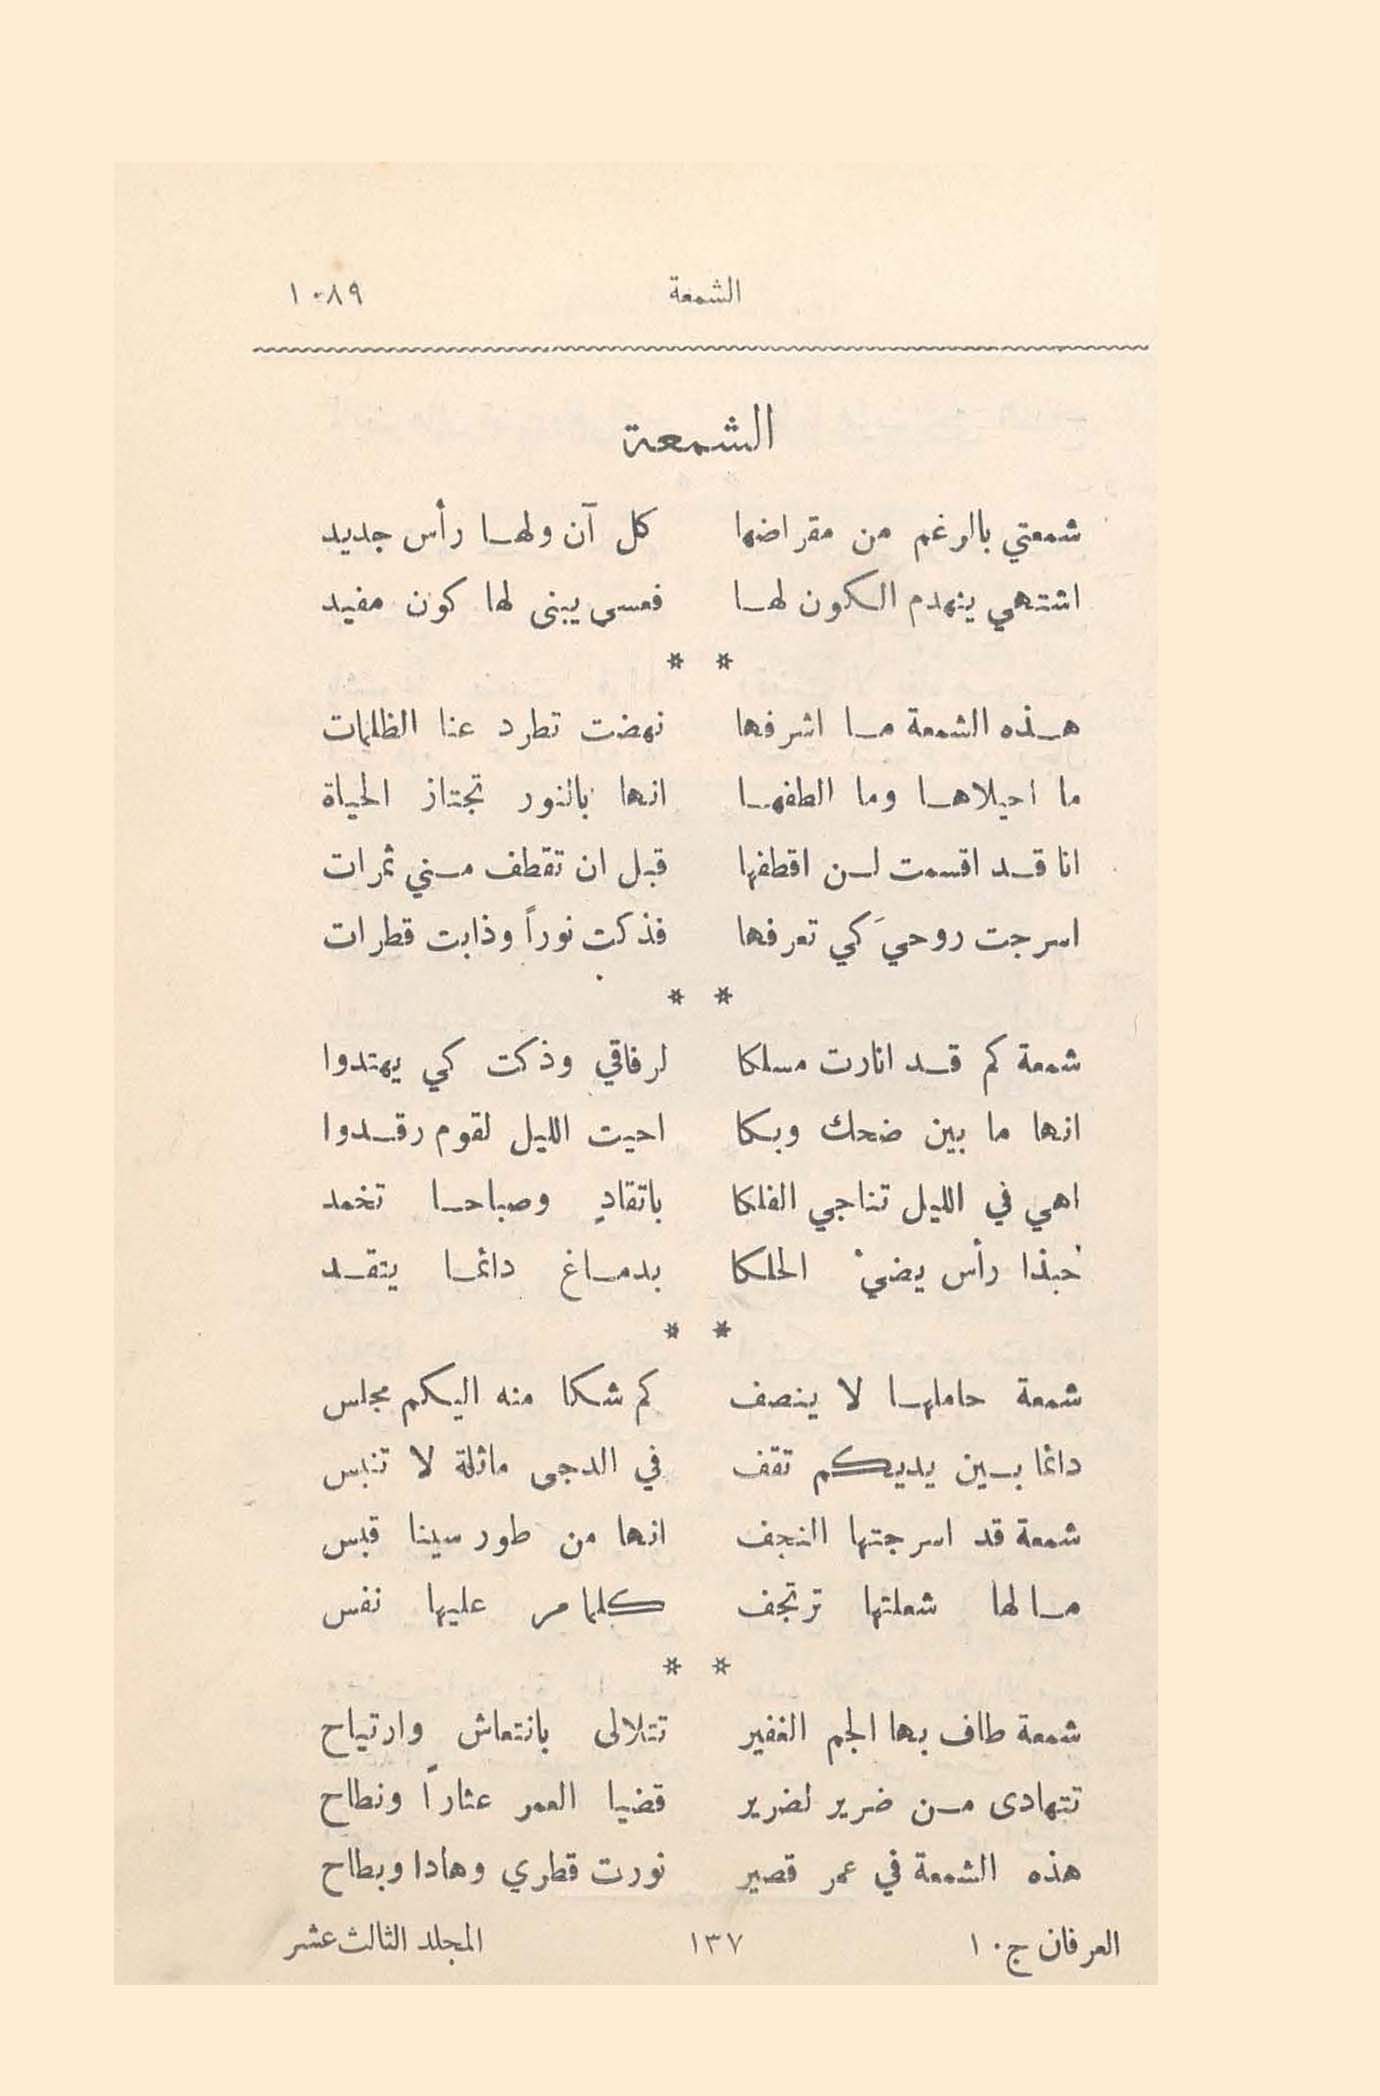 الشمعة ١٠٨٩
الشمعة
شمعتي بالرغم من مقراضها كل آن ولها رأس جديد
اشتهي ينهدم الكون لها فعسى يبنى لها كون مفيد
* *
هذه الشمعة ما اشرفها نهضت تطرد عنا الظلمات
ما احيلاها وما الطفها انها بالنور تجتاز الحياة
انا قد اقسمت لن اقطفها قبل ان تقطف مني ثمرات
اسرجت روحيَ كي تعرفها فذكت نوراً وذابت قطرات
* *
شمعة كم قد انارت مسلكا لرفاقي وذكت كي يهتدوا
انها ما بين ضحك وبكا احيت الليل لقوم رقدوا
اهي في الليل تناجي الفلكا باتقادٍ وصباحا تخمد
حبذا رأس يضيء الحلكا بدماغ دائما يتقد
* *
شمعة حاملها لا ينصف كم شكا منه اليكم مجلس
دائما بين يديكم تقف في الدجى ماثلة لا تنبس
شمعة قد اسرجتها النجف انها من طور سينا قبس
ما لها شعلتها ترتجف كلما مر عليها نفس
* *
شمعة طاف بها الجم الغفير تتلالى بانتعاش وارتياح
تتهادى من ضرير لضرير قضيا العمر عثاراً ونطاح
هذه الشمعة في عمر قصير نورت قطري وهادا وبطاح
العرفان ج ١٠ ١٣٧ المجلد الثالث عشر